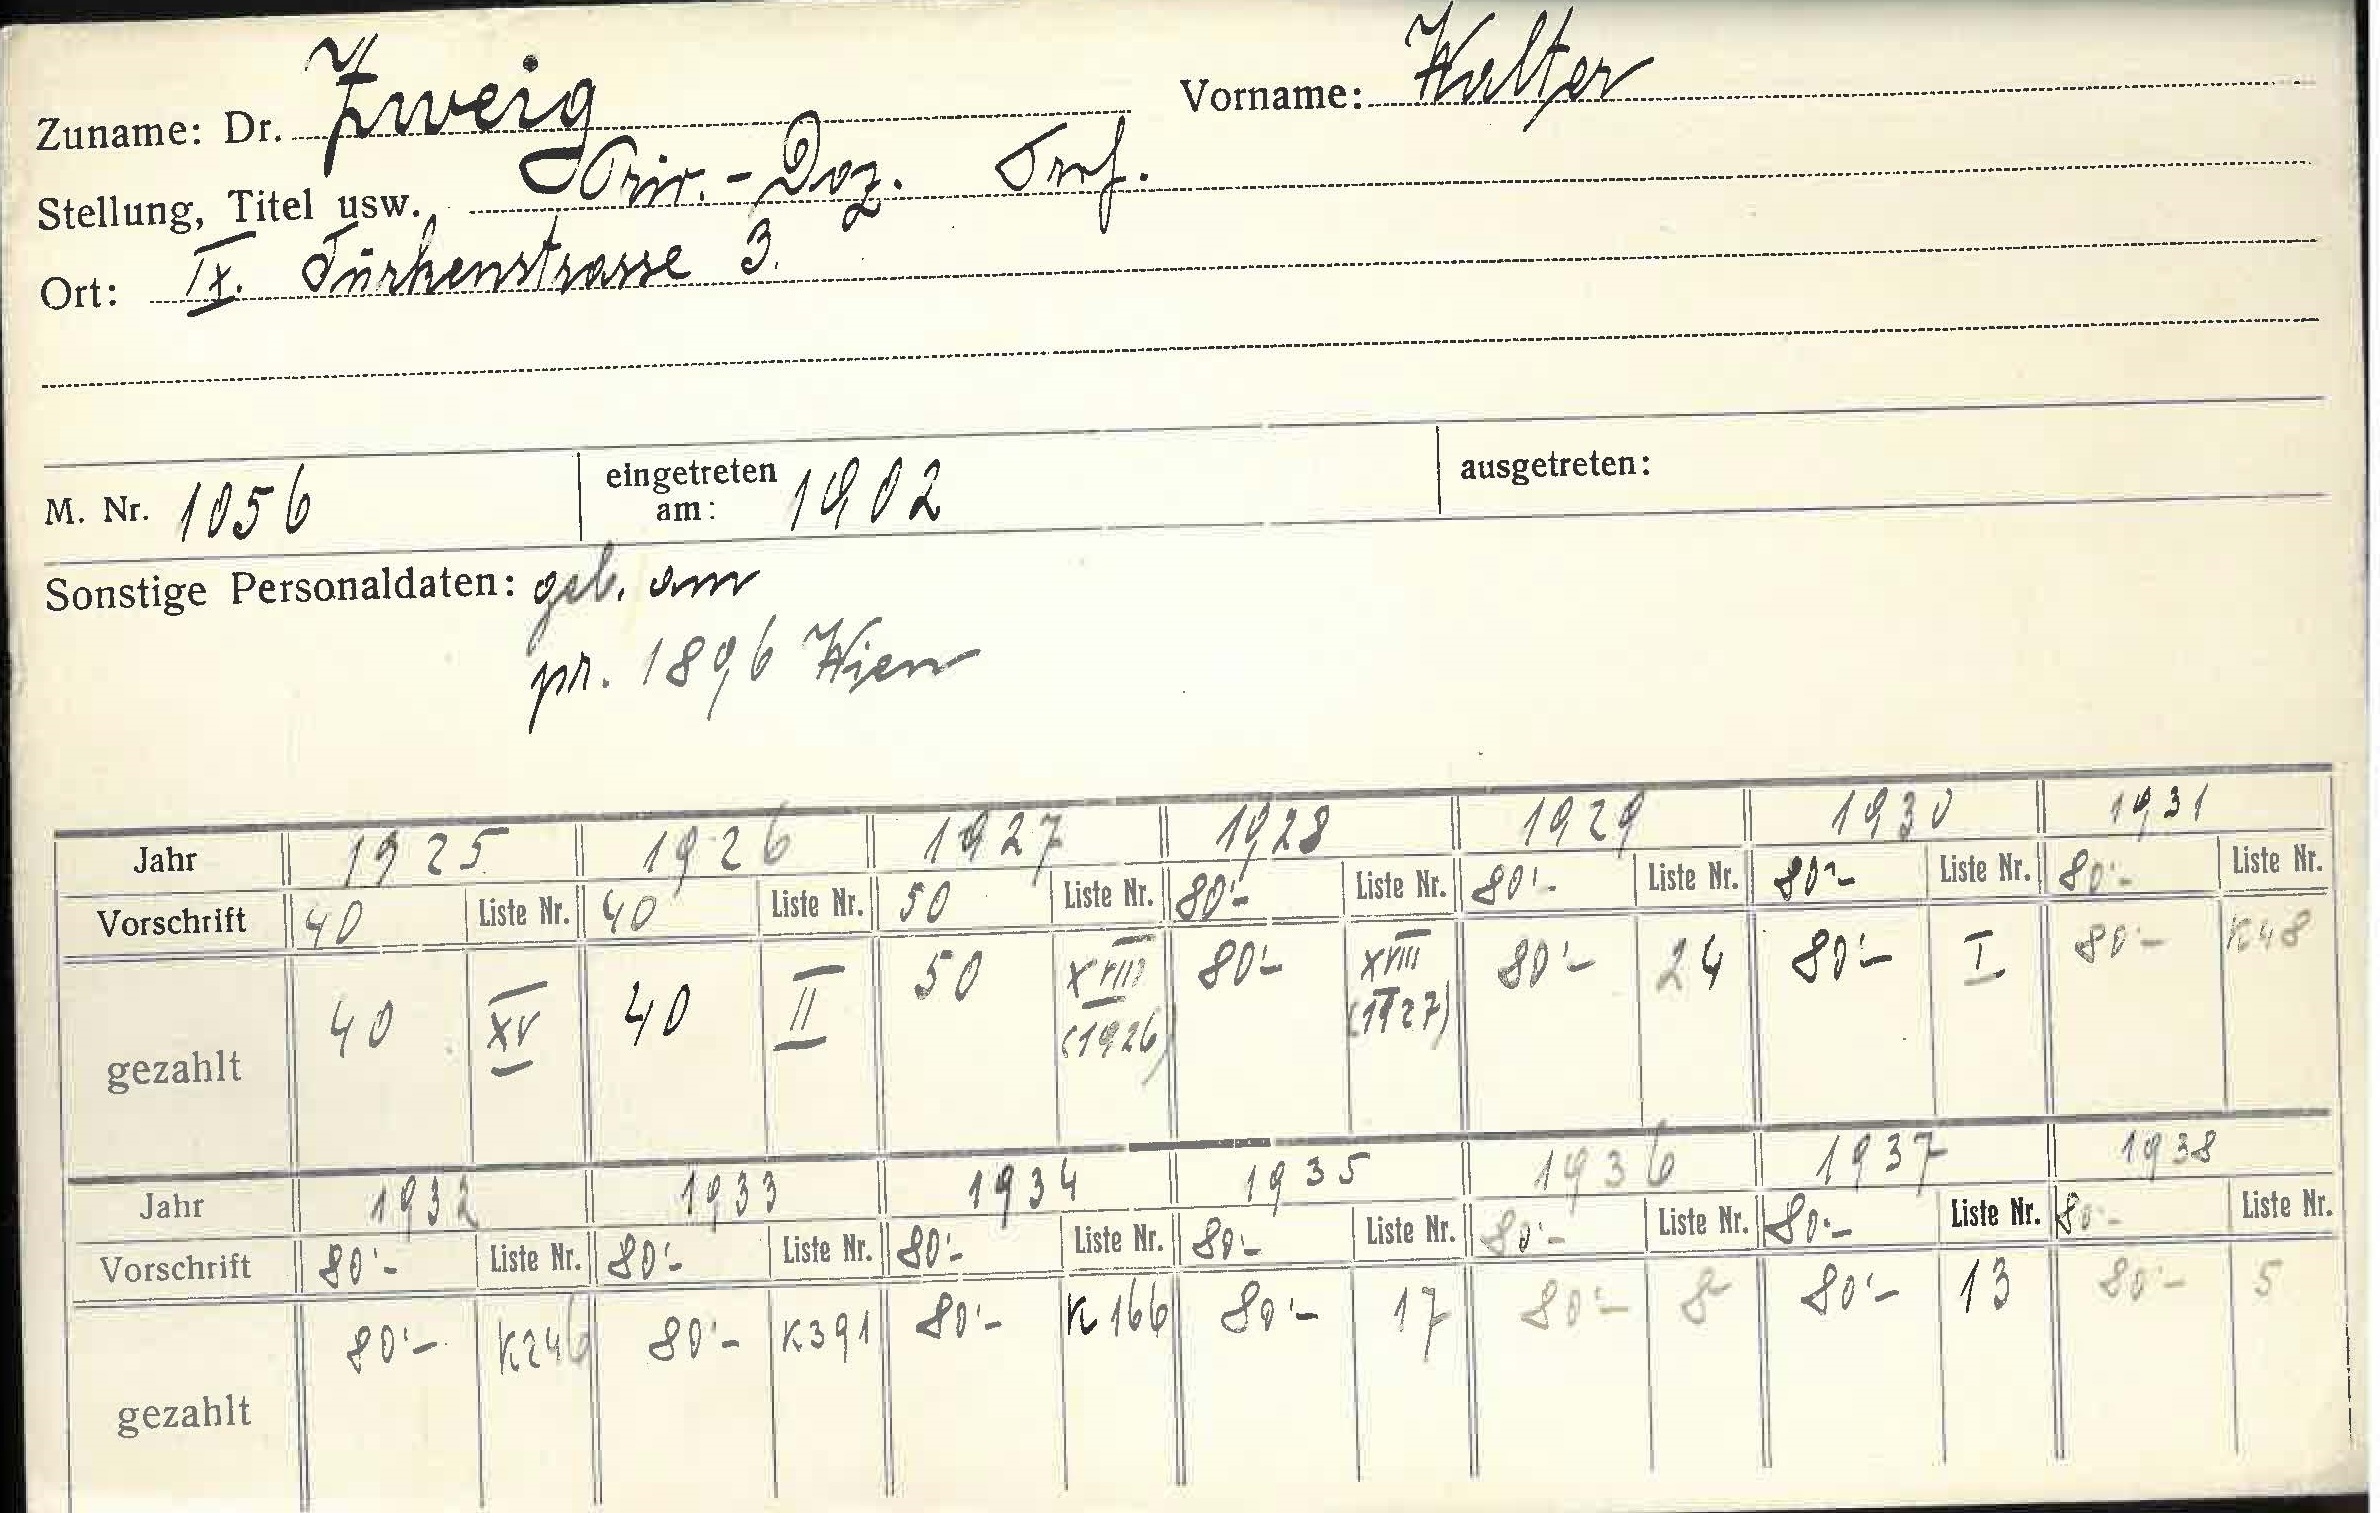 Zuname: Dr. Zweig Vorname: Walter
Stellung, Titel usw. Priv.-Doz. Prof.
Ort: IX. Türkenstrasse 3.
M. Nr. 1056 eingetreten am: 1902 ausgetreten:
Sonstige Personaldaten: geb. am
pr. 1896 Wien
Jahr 1925 1926 1927 1928 1929 1930 1931
Vorschrift 40 Liste Nr. 40 Liste Nr. 50 Liste Nr. 80'- Liste Nr. 80'- Liste Nr. 80'- Liste Nr. 80'- Liste Nr.
gezahlt 40 XV 40 II 50 XVIII (1926) 80'- XVIII (1927) 80'- 24 80'- I 80'- K48
Jahr 1932 1933 1934 1935 1936 1937 1938
Vorschrift 80'- Liste Nr. 80'- Liste Nr. 80'- Liste Nr. 80'- Liste Nr. 80'- Liste Nr. 80'- Liste Nr. 80'- Liste Nr.
gezahlt 80'- K246 80'- K391 80'- K166 80'- 17 80'- 8 80'- 13 80'- 5